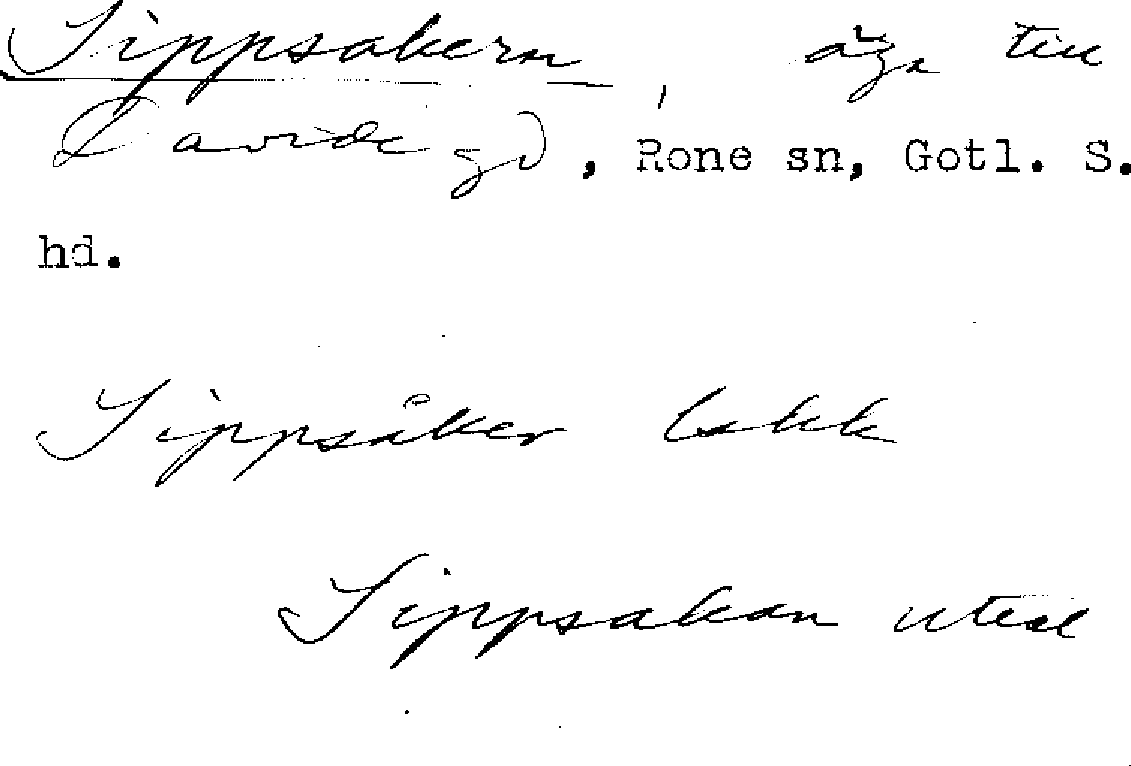 Sippsakern, äga till
Davide gd, Rone sn, Gotl. S.
hd.
Sippsåker lskk
Sippsakan uteal